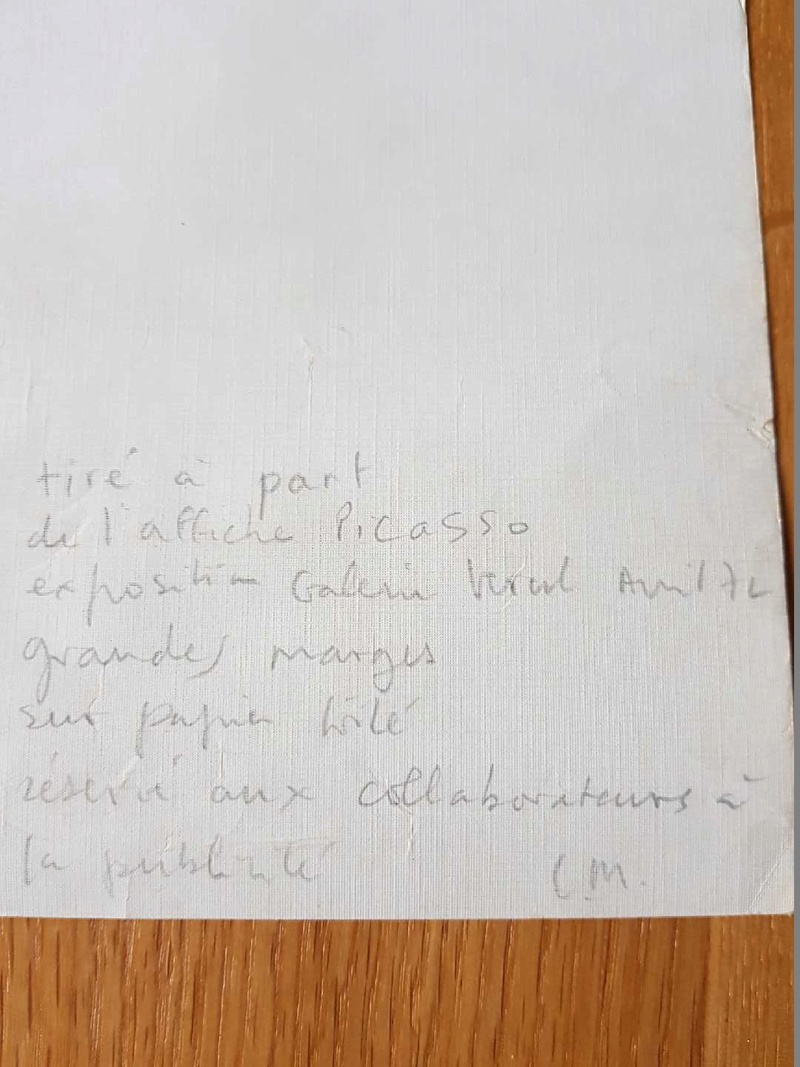 tiré à part
de l'affiche Picasso
exposition Galerie Avril 72
grandes marges
sur papier toilé
réservé aux collaborateurs à
la publicité C.M.